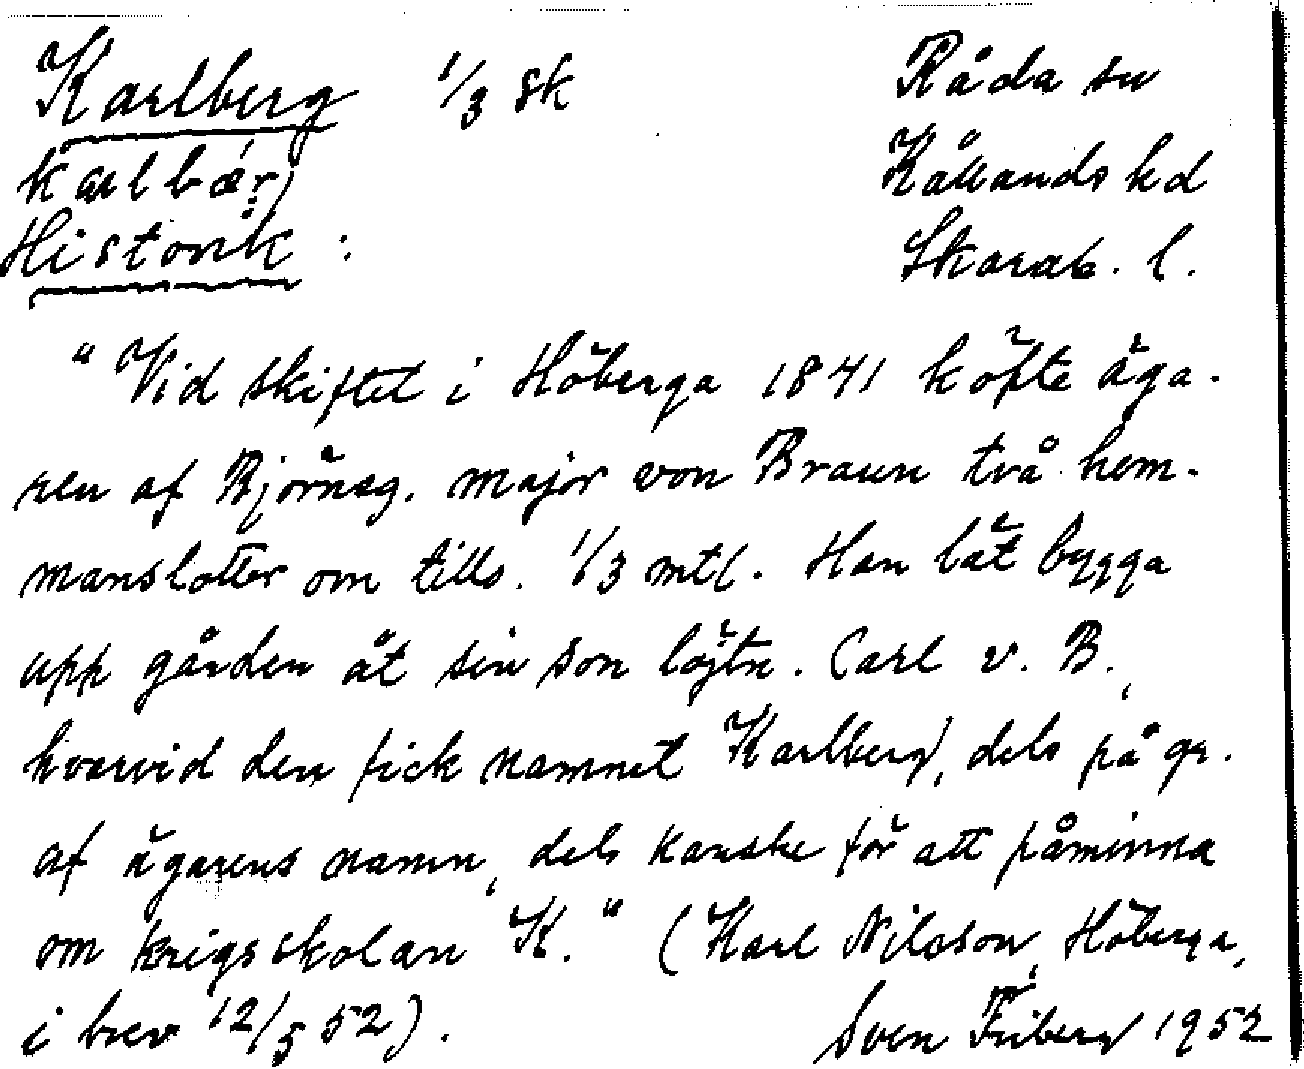 Karlberg 1/3 sk Råda sn
karlbær) Kållands hd
Historik : Skarab. l.
"Vid skiftet i Höberga 1841 köpte äga-
ren af Björneg. major von Braun två hem-
manslotter om tills. 1/3 mtl. Han lät bygga
upp gården åt sin son löjtn. Carl v. B.,
hvarvid den fick namnet Karlberg, dels på gr.
af ägarens namn, dels kanske för att påminna
om krigsskolan K." (Karl Nilsson, Höberga,
i brev 12/5 52). Sven Friberg 1952